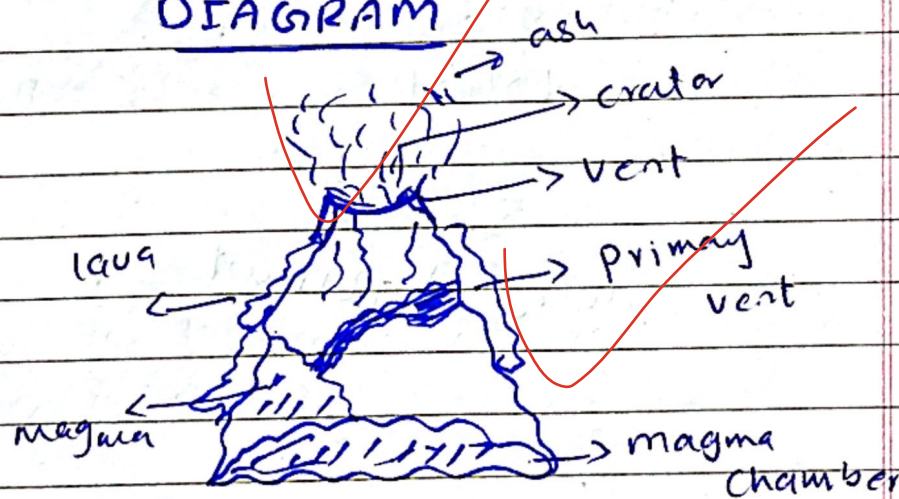 DIAGRAM
ash
crator
vent
lava
primay
vent
magma
magma
chamber